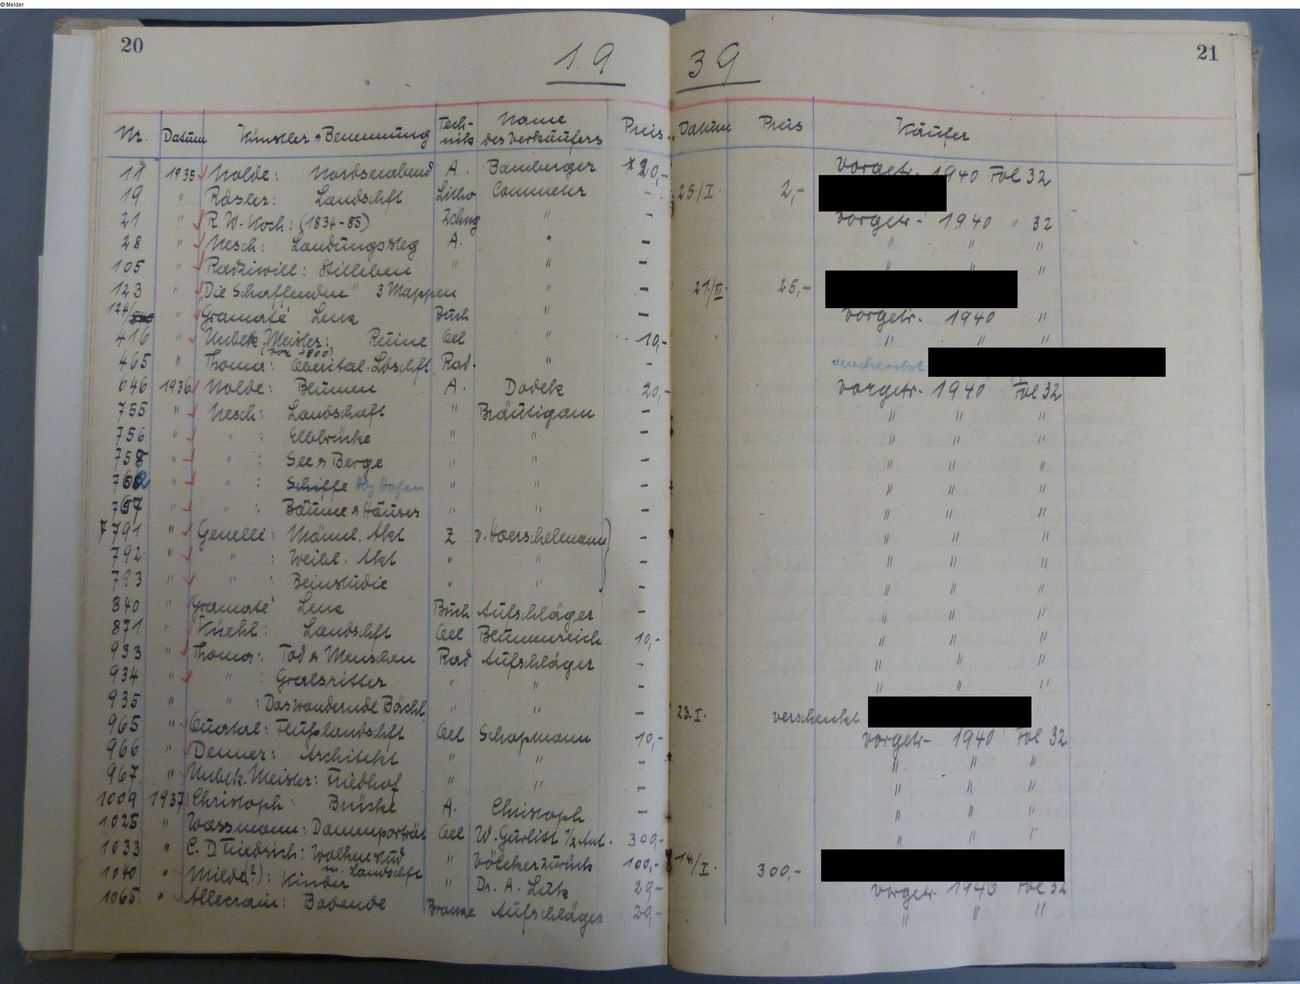 © Melder
20 21
19 39
Nr. Datum Künstler & Benennung Tech-nik Name des Verkäufers Preis Datum Preis Käufer
11 1935 Nolde: Nordseeabend A. Bamberger 20,- Vorgetr. 1940 Fol 32
19 " Rösler: Landschft Litho Commeter - 25./I. 2,-
21 " R. W. Koch: (1834-85) Zchng " - Vorgetr. 1940 " 32
28 " Nesch: Landungssteg A. " - " " "
105 " Radziwill: Stilleben " " - " "
123 " "Die Schaffenden" 3 Mappen " - 21./III. 25,-
124/ " Gramaté Lenz Buch " - Vorgetr. 1940 "
416 " Unbek. Meister: Ruine Oel " 10,- " " "
(vor 1800)
465 " Thoma: Oberital. Ldschft Rad. " - verschenkt
646 1936 Nolde: Blumen A. Dodek 20,- Vorgetr. 1940 Fol 32
755 " Nesch: Landschaft " Bräutigam - " " "
756 " " : Elbbrücke " " - " " "
758 " " : See & Berge " " - " " "
762 " " : Schiffe Hafen " " - " " "
767 " " : Bäume & Häuser " " - " " "
791 " Genelli: Männl. Akt Z v. Hoerschelmann - " " "
792 " " : Weibl. Akt " " - " " "
793 " " : Beinstudie " " - " " "
840 " Gramaté Lenz Buch Aufschläger - " " "
871 " Kuehl: Landschft Oel Blumenreich 10,- " " "
933 " Thoma: Tod & Menschen Rad Aufschläger - " " "
934 " " : Gralsritter " " - " " "
935 " " : Das wandernde Bächl. " " - 23.I. verschenkt
965 " Flußlandschft Oel Schopmann 10,- Vorgetr. 1940 Fol 32
966 " Denner: Architekt " " - " " "
967 " Unbek. Meister: Friedhof " " - " " "
1009 1937 Christoph: Brücke A. Christoph - " " "
1025 " Wassmann: Damenporträt Oel W. Gurlitt 1/2 Ant. 300,- " " "
1033 " C. D. Friedrich: " Völcker zurück 100,- 14./I. 300,-
1040 " (?): Kinder m. Landschaft " Dr. A. Lutz 20,- vorgetr. 1940 Fol 32
1065 " Badende Bronze Aufschläger 20,- " " "